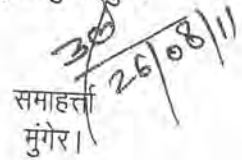 26/08/11
समाहर्त्ता
मुंगेर।